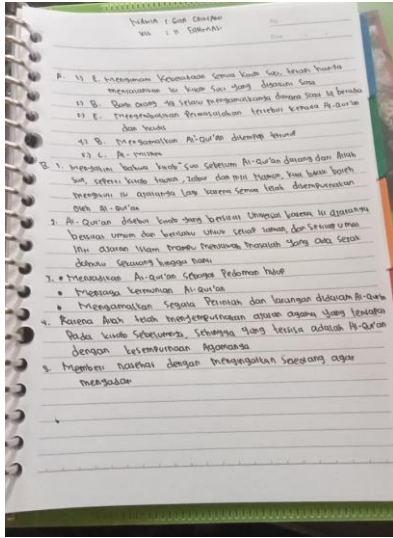 Nama :
VIII :
No :
Date :
A. 1) C. Mengimani Keberadaan Semua Kitab Suci, tetapi hanya
mengamalkan isi kitab Suci yang digaransi
2) B. Bagi orang yg selalu mengamalkannya dimana saja ia berada
3) C. Mengembalikan Permasalahan tersebut kepada Al-Qur'an
dan hadis
4) B. Mengamalkan Al-Qur'an ditempat
5) C. Al-
B. 1. Mengakui bahwa kitab" Suci sebelum Al-Qur'an datang dari Allah
Swt, seperti kitab taurat, zabur dan injil Namun, kita tidak boleh
mengikuti isi ajarannya lagi karena Semua telah disempurnakan
oleh Al-Qur'an
2. Al-Qur'an disebut kitab yang bersifat Universal karena isi ajarannya
bersifat umum dan berlaku untuk setiap zaman, dan setiap umat
Inti ajaran Islam mampu menjawab masalah yang ada sejak
dahulu sekarang hingga nanti
3. • Menjadikan Al-Qur'an Sebagai Pedoman hidup
• Menjaga kemurnian Al-Qur'an
• Mengamalkan Segala Perintah dan larangan didalam Al-Qur'an
4. Karena Allah telah menyempurnakan ajaran agama yang terdapat
Pada kitab Sebelumnya, Sehingga yang tersisa adalah Al-Qur'an
dengan kesempurnaan Agamanya
5. Memberi nasehat dengan mengingatkan Seseorang agar